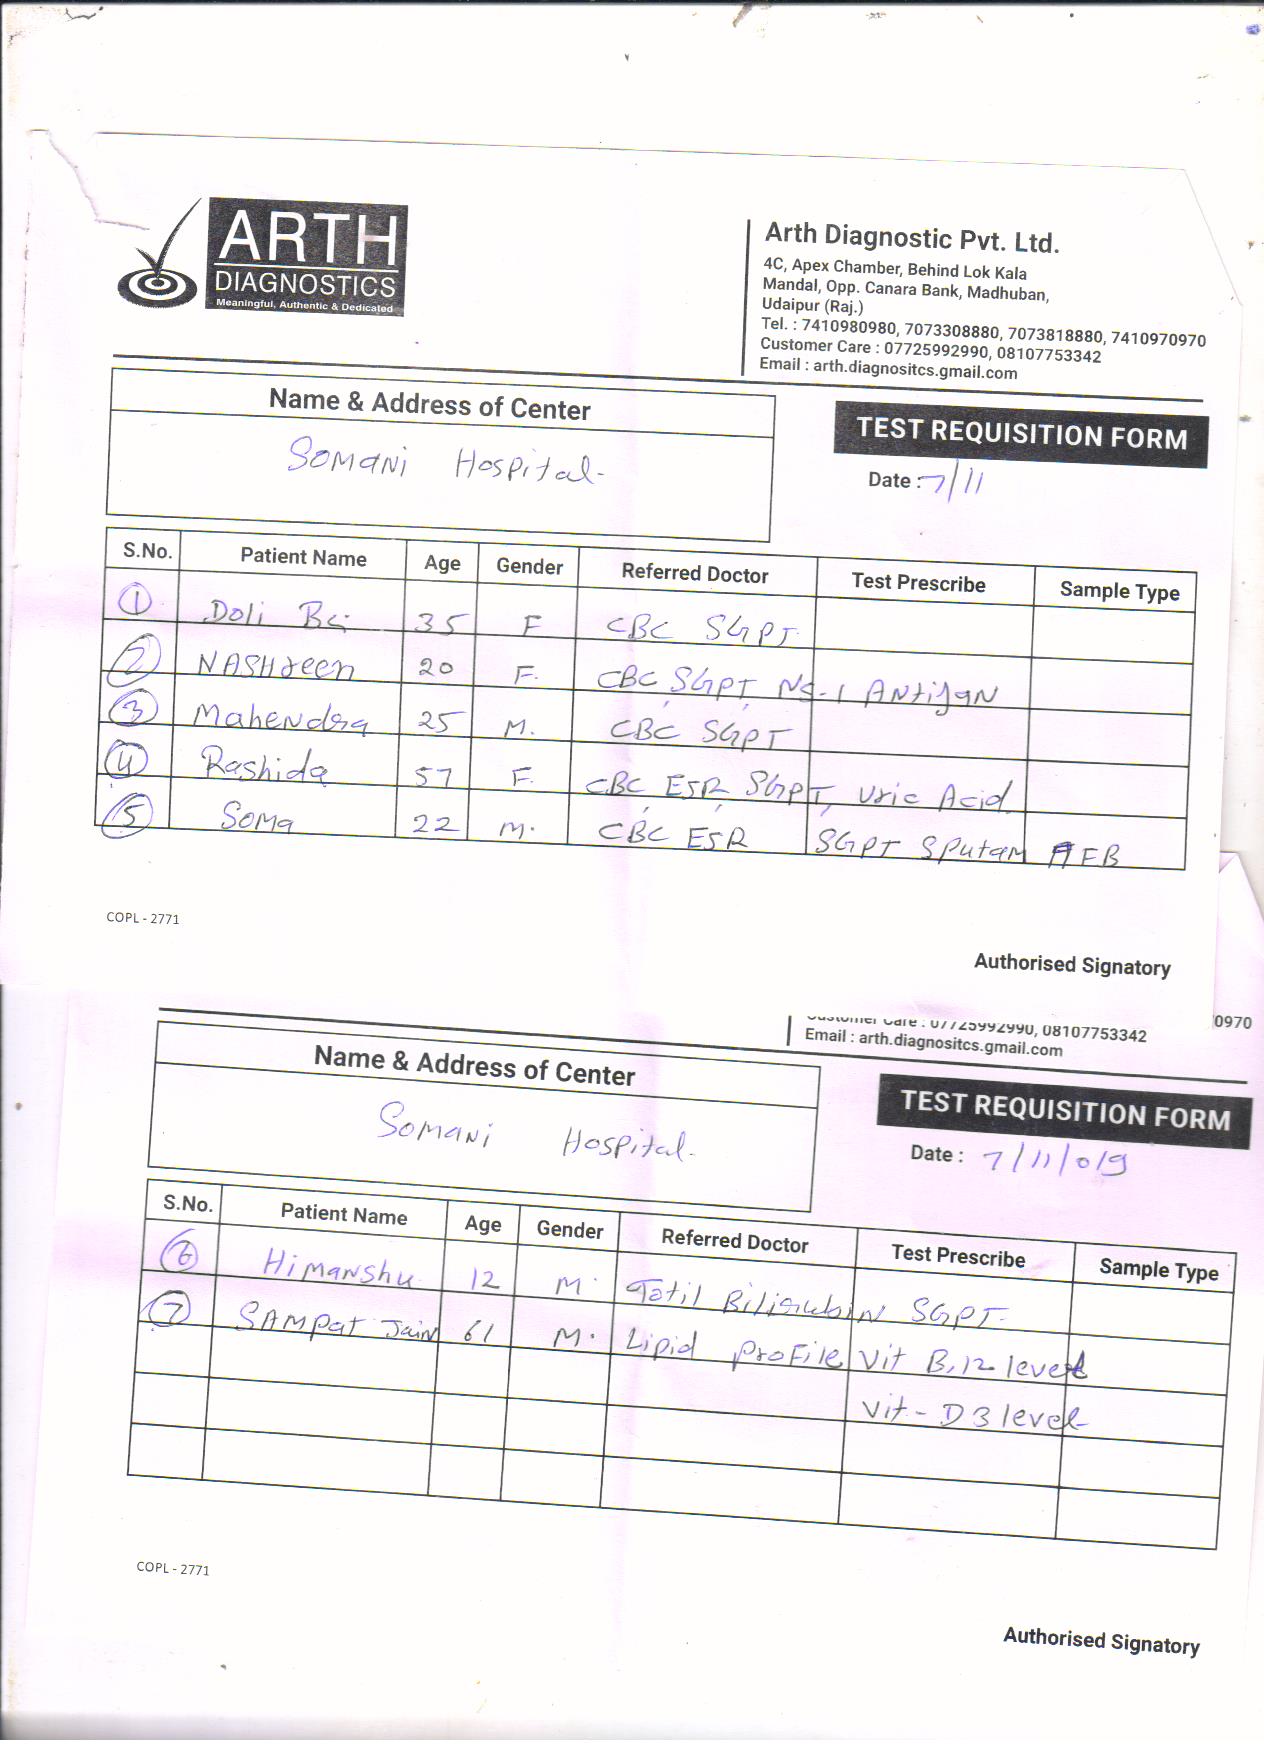 ARTH
DIAGNOSTICS
Meaningful, Authentic & Dedicated
Arth Diagnostic Pvt. Ltd.
4C, Apex Chamber, Behind Lok Kala
Mandal, Opp. Canara Bank, Madhuban,
Udaipur (Raj.)
Tel. : 7410980980, 7073308880, 7073818880, 7410970970
Customer Care : 07725992990, 08107753342
Email : arth.diagnositcs.gmail.com
Name & Address of Center
Somani Hospital-
TEST REQUISITION FORM
Date : 7/11
S.No. Patient Name Age Gender Referred Doctor Test Prescribe Sample Type
1 Doli 35 F CBC SGPT
2 NASHreen 20 F. CBC, SGPT, NS-1 Antigan
3 Mahendra 25 M. CBC SGPT
4 Rashida 57 F. CBC, ESR, SGPT, Uric Acid
5 Soma 22 M. CBC ESR SGPT Sputam AFB
COPL - 2771
Authorised Signatory
0970
Customer Care : 07725992990, 08107753342
Email : arth.diagnositcs.gmail.com
Name & Address of Center
Somani Hospital-
TEST REQUISITION FORM
Date : 7/11/019
S.No. Patient Name Age Gender Referred Doctor Test Prescribe Sample Type
6 Himanshu 12 M. Totil Bilirubin SGPT-
7 SAMPat Jain 61 M. Lipid ProFile Vit B,12 level
Vit-D3 level-
COPL - 2771
Authorised Signatory